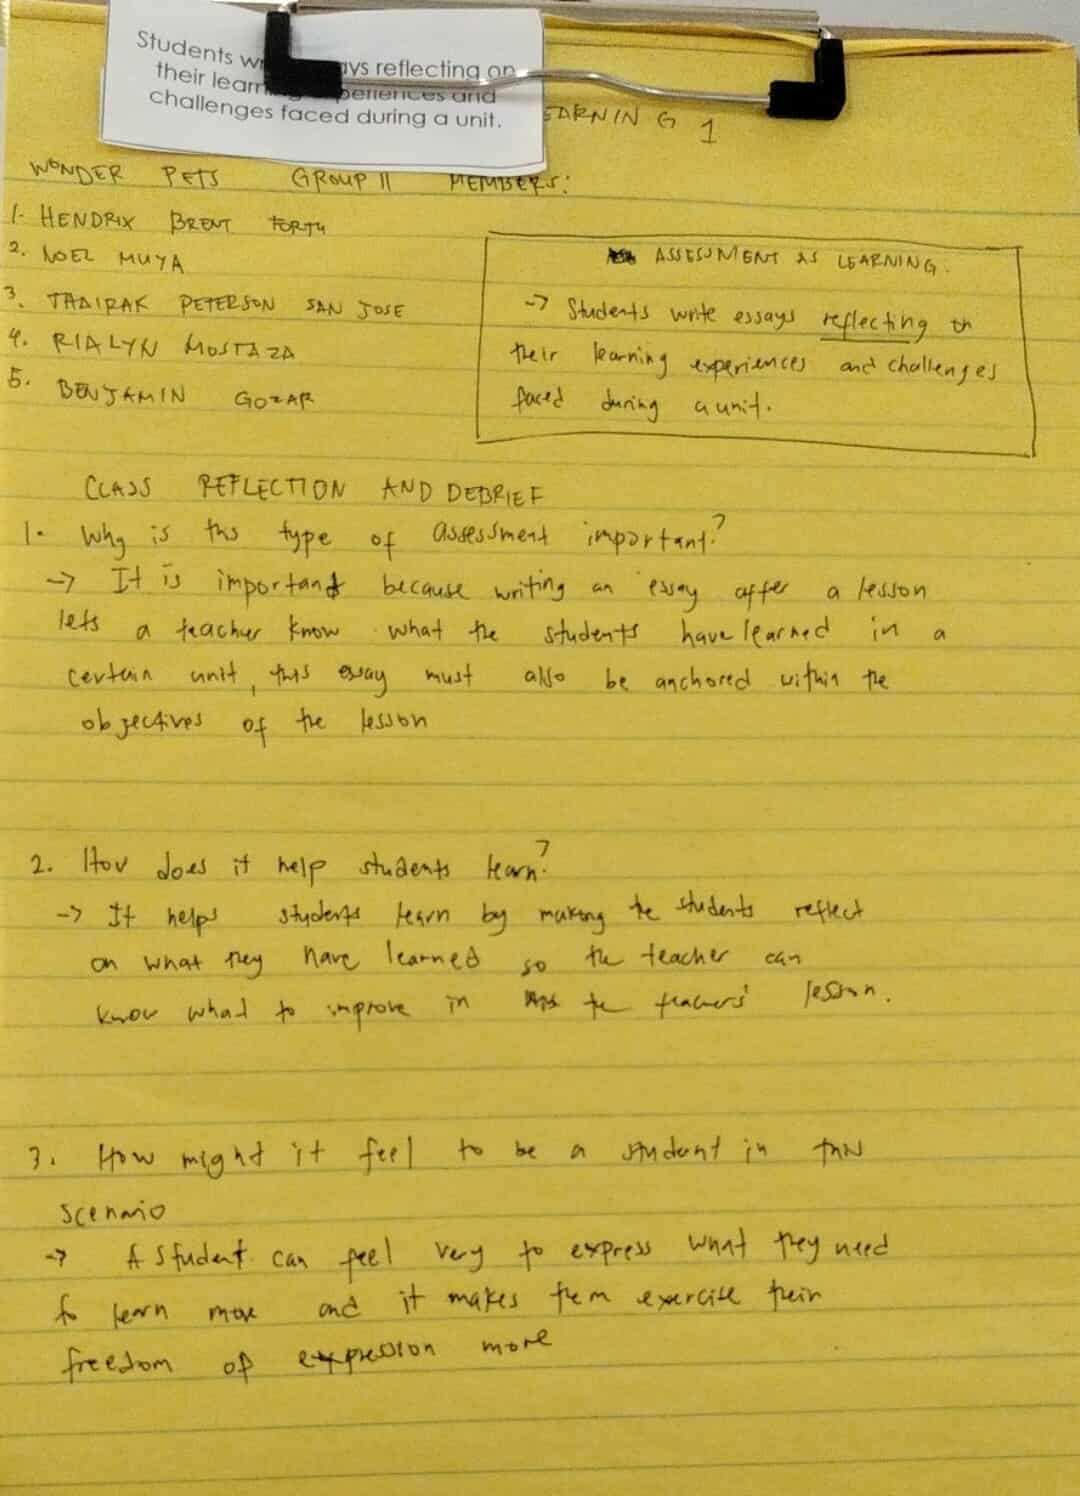 Students w ays reflecting on
their learning experiences and
challenges faced during a unit.
EARNING 1
WONDER PETS GROUP 11 MEMBERS:
1. HENDRIX BRENT
2. NOEL MUYA
3. PETERSON SAN JOSE
4. RIALYN MOSTAZA
5. BENJAMIN GOZAR
ASSESSMENT AS LEARNING.
-> Students write essays reflecting on
their learning experiences and challenges
faced during a unit.
CLASS REFLECTION AND DEBRIEF
1. Why is ths type of assessment important?
-> It is important because writing an essay after a lesson
lets a teacher know what the students have learned in a
certain unit, this essay must also be anchored within the
objectives of the lesson
2. How does it help students learn?
-> It helps students learn by making the students reflect
on what they have learned so the teacher can
know what to improve in the teachers' lesson.
3. How might it feel to be a student in this
scenario
-> A student can feel very to express what they need
to learn more and it makes them exercise their
freedom of expression more